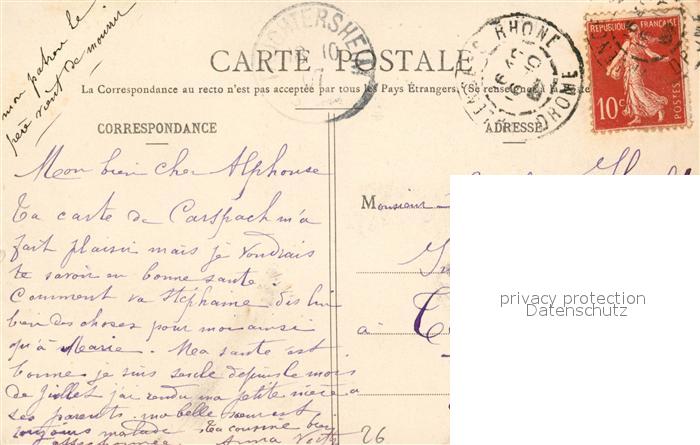 mon patron le
père vient de mourir
CARTE POSTALE
La Correspondance au recto n'est pas acceptée par tous les Pays Étrangers. (Se renseigner à la Poste
CORRESPONDANCE
ADRESSE
RHONE
RHONE
REPUBLIQUE FRANÇAISE
10c
POSTES
Mon bien cher Alphonse
Ta carte de Carspach m'a
fait plaisir mais je voudrais
te savoir en bonne santé.
Comment va Stéphanie dis lui
bien des choses pour moi ainsi
qu'à Marie. Ma santé est
bonne je suis seule depuis le mois
de Juillet j'ai rendu ma petite nièce a
ses parents. ma belle soeur est
toujours malade. Ta cousine bien
Anna
26
Monsieur
à
privacy protection
Datenschutz